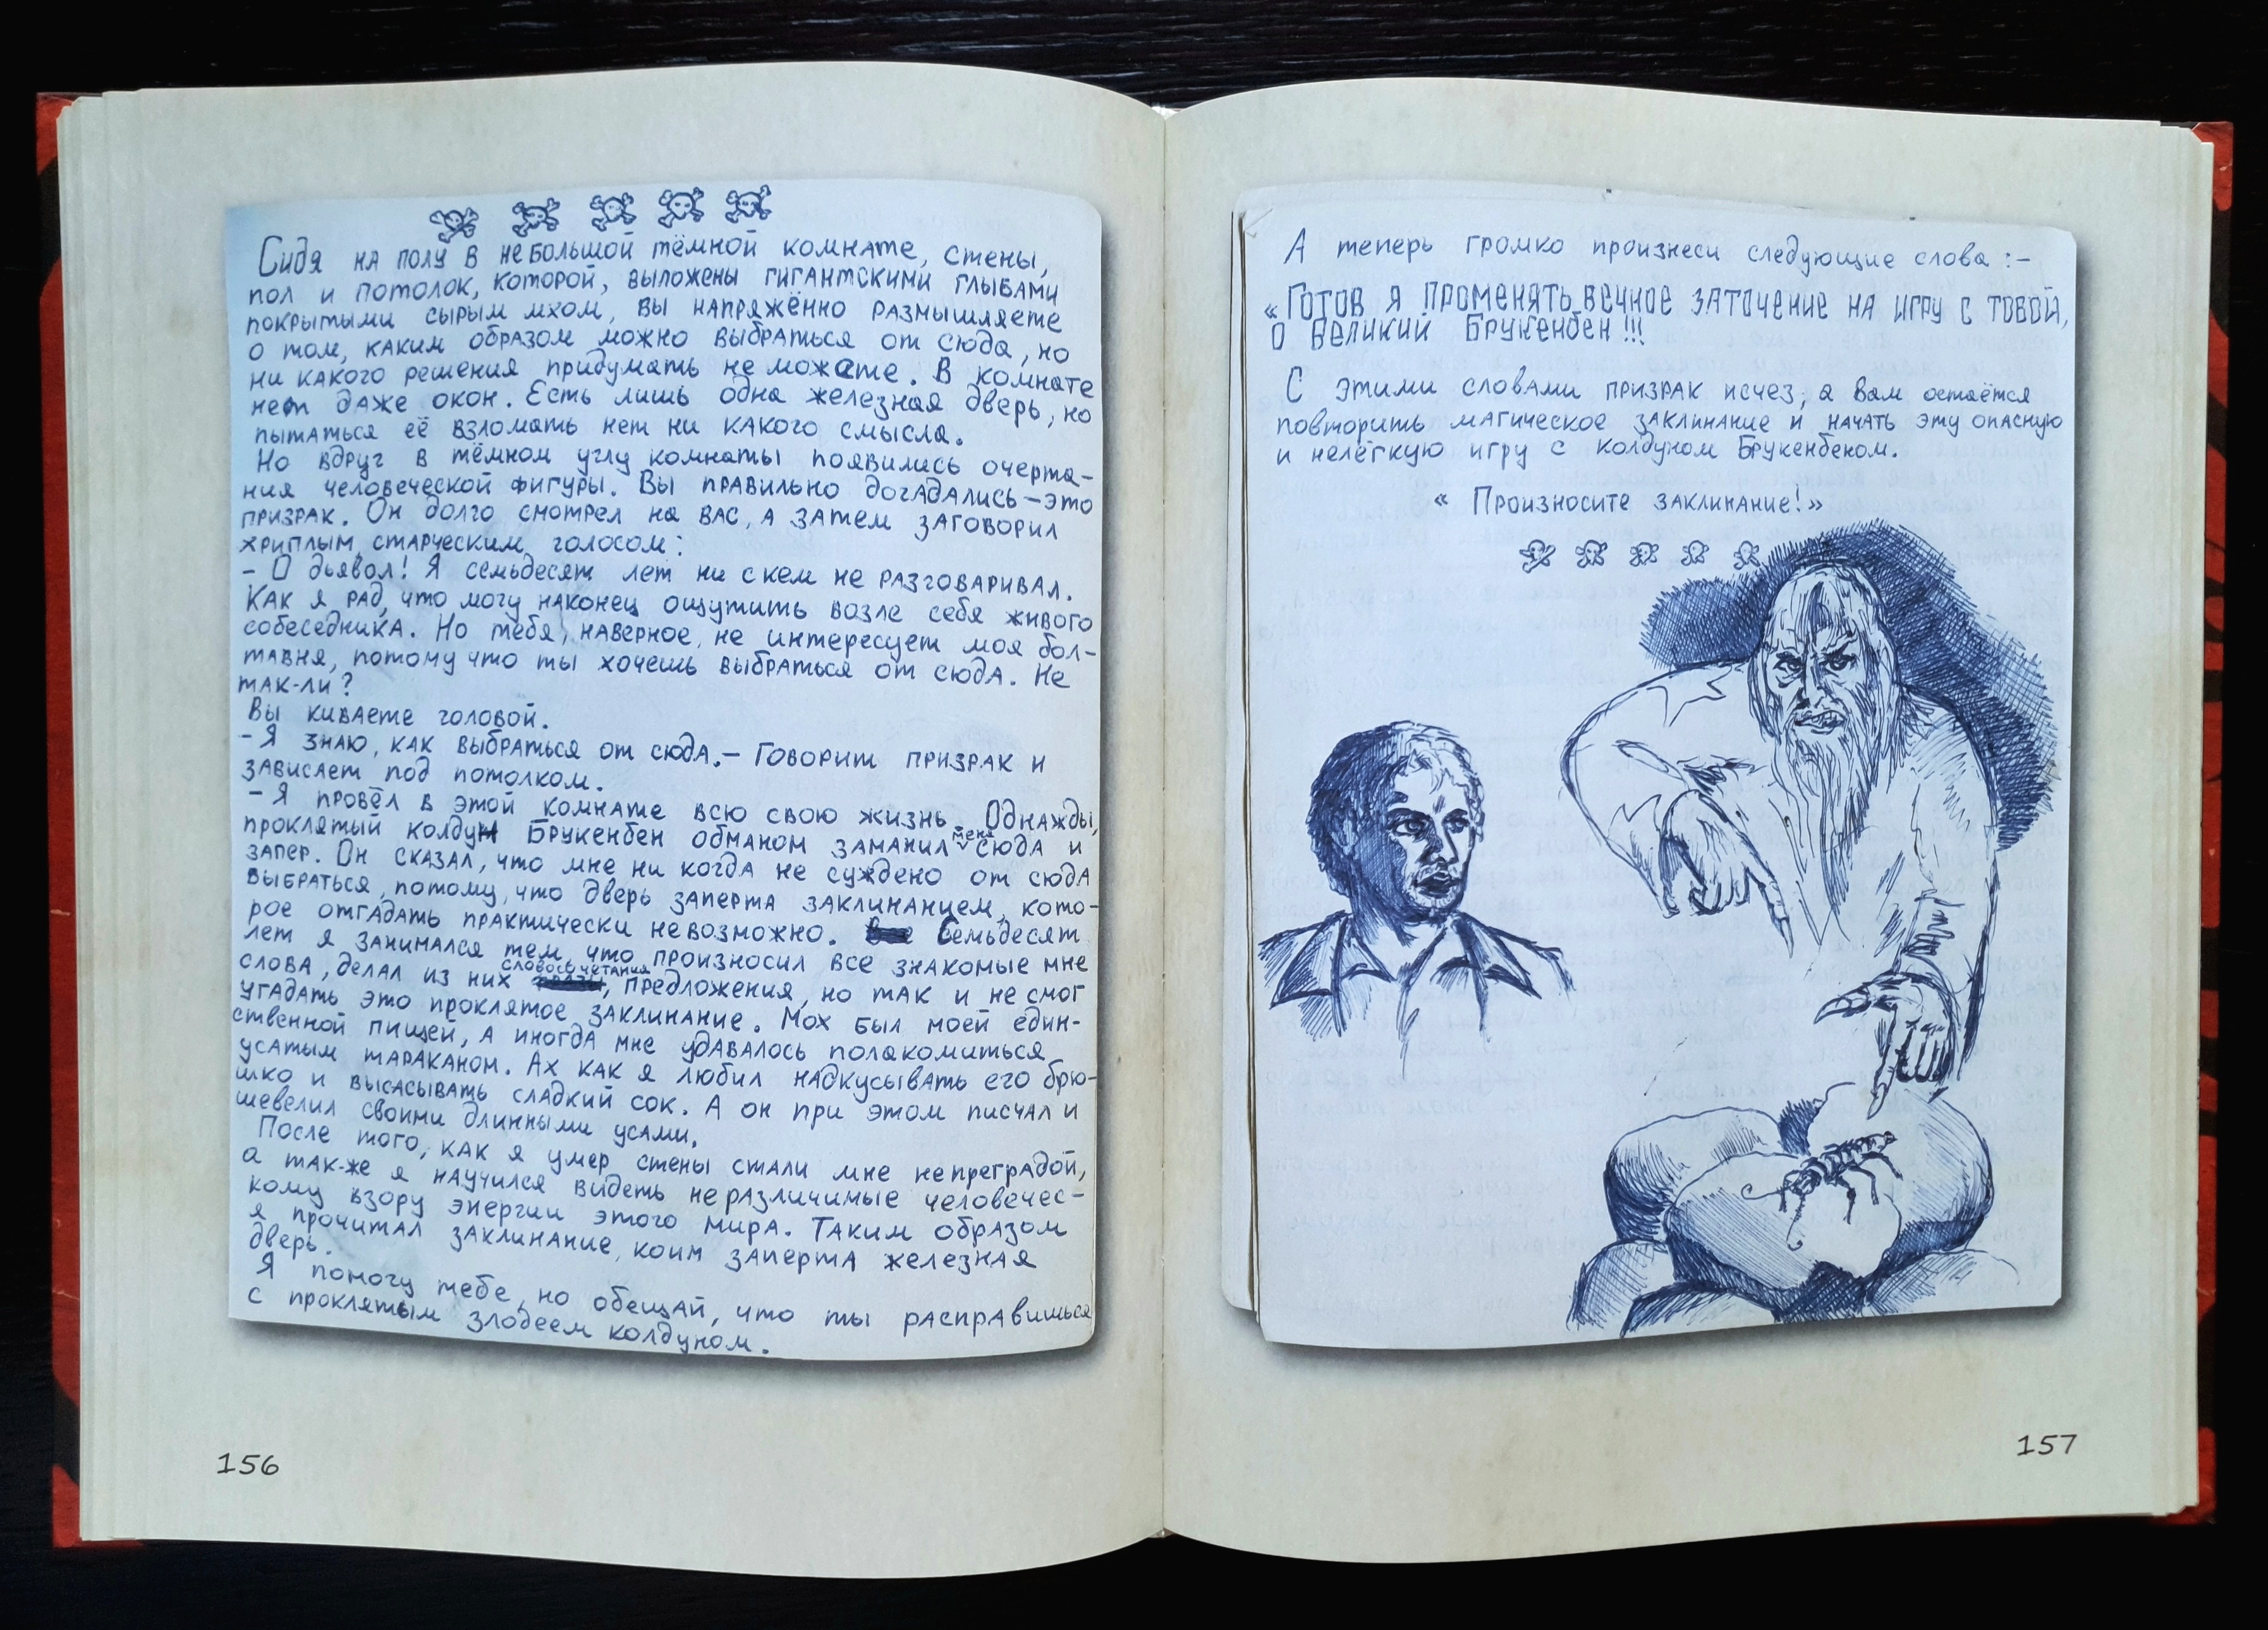 Сидя на полу в небольшой тёмной комнате, стены,
пол и потолок, которой, выложены гигантскими глыбами
покрытыми сырым мхом, вы напряжённо размышляете
о том, каким образом можно выбраться от сюда, но
ни какого решения придумать не можете. В комнате
нет даже окон. Есть лишь одна железная дверь, но
пытаться её взломать нет ни какого смысла.
Но вдруг в тёмном углу комнаты появились очерта-
ния человеческой фигуры. Вы правильно догадались – это
призрак. Он долго смотрел на вас, а затем заговорил
хриплым старческим голосом:
– О дьявол! Я семьдесят лет ни с кем не разговаривал.
Как я рад, что могу наконец ощутить возле себя живого
собеседника. Но тебя, наверное, не интересует моя бол-
тавня, потому что ты хочешь выбраться от сюда. Не
так-ли?
Вы киваете головой.
– Я знаю, как выбраться от сюда. – Говорит призрак и
зависает под потолком.
– Я провёл в этой комнате всю свою жизнь. Однажды,
проклятый колдун Брукенбен обманом заманил меня сюда и
запер. Он сказал, что мне ни когда не суждено от сюда
выбраться, потому, что дверь заперта заклинанием, кото-
рое отгадать практически невозможно. Семьдесят
лет я занимался тем, что произносил все знакомые мне
слова, делал из них словосочетания, предложения, но так и не смог
угадать это проклятое заклинание. Мох был моей един-
ственной пищей, а иногда мне удавалось полакомиться
усатым тараканом. Ах как я любил надкусывать его брю-
шко и высасывать сладкий сок. А он при этом писчал и
шевелил своими длинными усами.
После того, как я умер стены стали мне непреградой,
а так-же я научился видеть неразличимые человечес-
кому взору энергии этого мира. Таким образом
я прочитал заклинание, коим заперта железная
дверь.
Я помогу тебе, но обещай, что ты расправишься
с проклятым злодеем колдуном.
156
А теперь громко произнеси следующие слова :–
«Готов я променять вечное заточение на игру с тобой,
о великий Брукенбен!!!
С этими словами призрак исчез, а вам остаётся
повторить магическое заклинание и начать эту опасную
и нелёгкую игру с колдуном Брукенбеном.
« Произносите заклинание!»
157